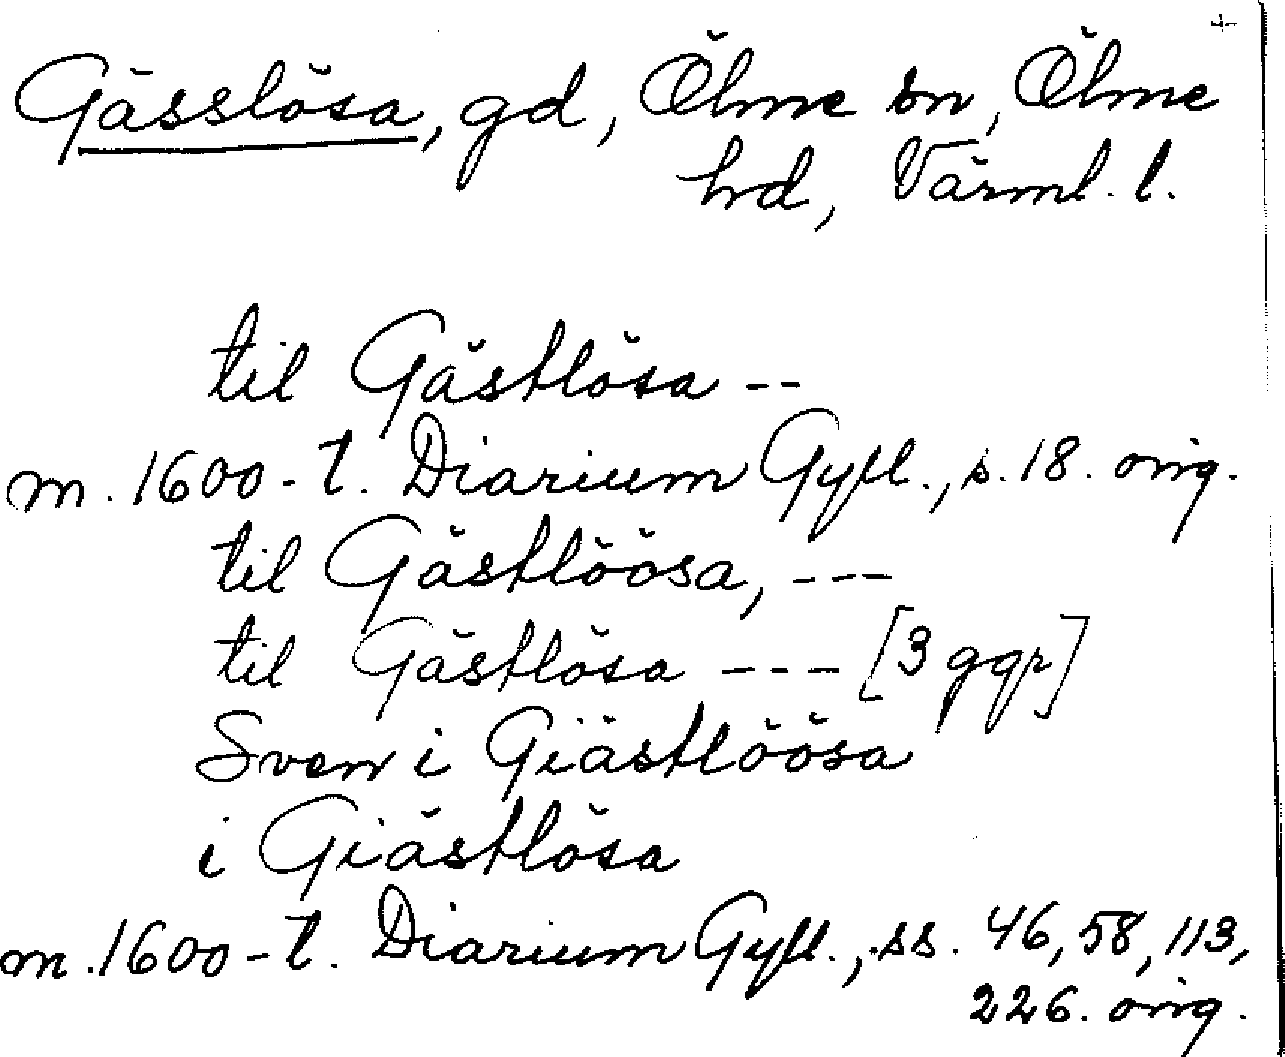 +
Gässlösa, gd, Ölme sn, Ölme
hd, Värml. l.
til Gästlösa --
m. 1600-t. Diarium Gyll., s. 18. orig.
til Gästlöösa, ---
til Gästlösa --- [3 ggr]
Sven i Giästlöösa
i Giästlösa
m. 1600-t. Diarium Gyll., ss. 46, 58, 113,
226. orig.